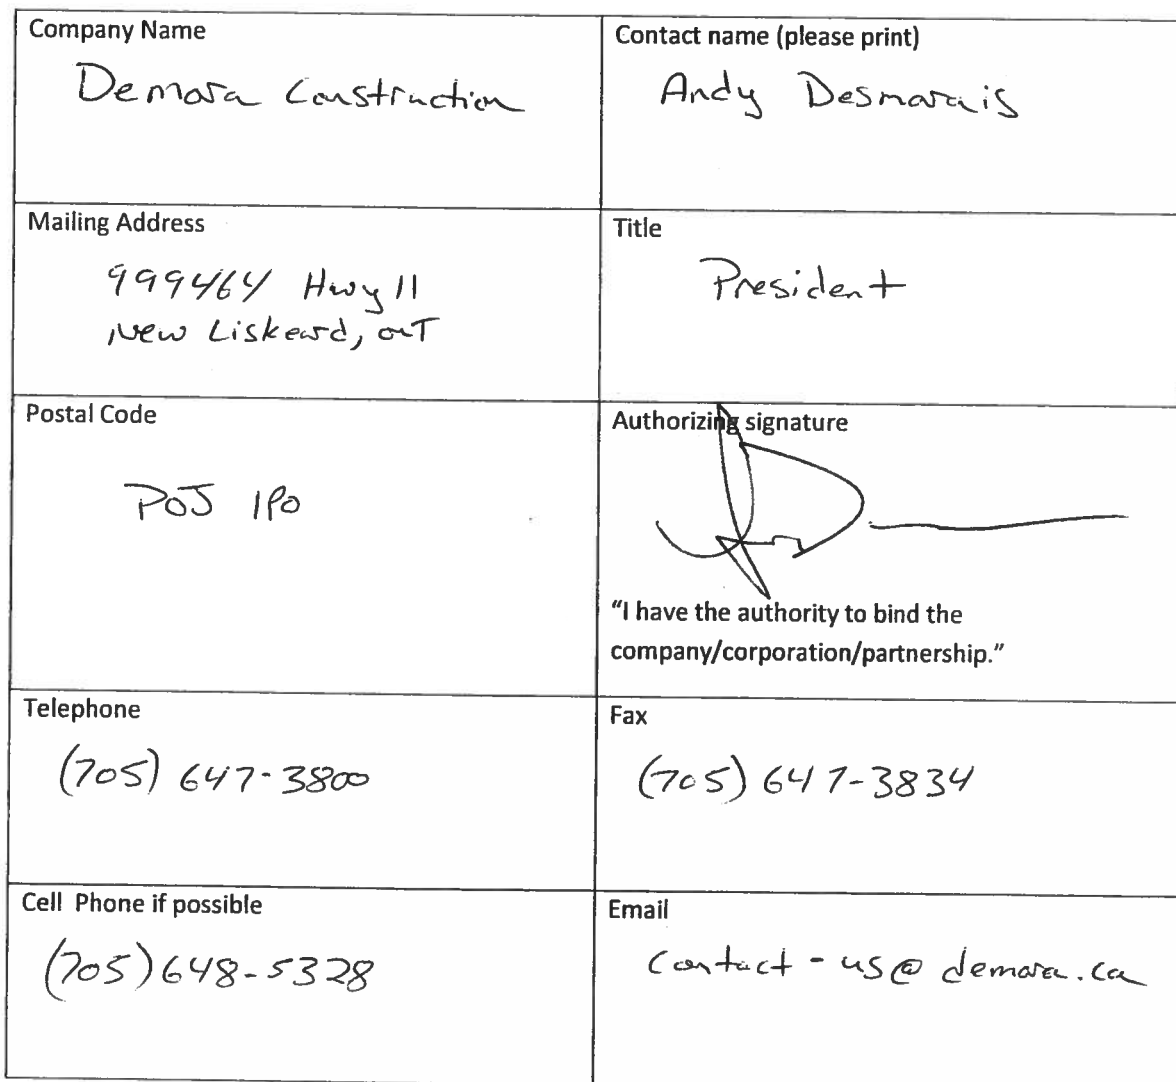 Company Name
Demora Construction
Contact name (please print)
Andy Desmarais
Mailing Address
999464 Hwy 11
New Liskeard, ONT
Title
President
Postal Code
P0J 1P0
Authorizing signature
"I have the authority to bind the
company/corporation/partnership."
Telephone
(705) 647-3800
Fax
(705) 647-3834
Cell Phone if possible
(705) 648-5328
Email
contact-us@demora.ca